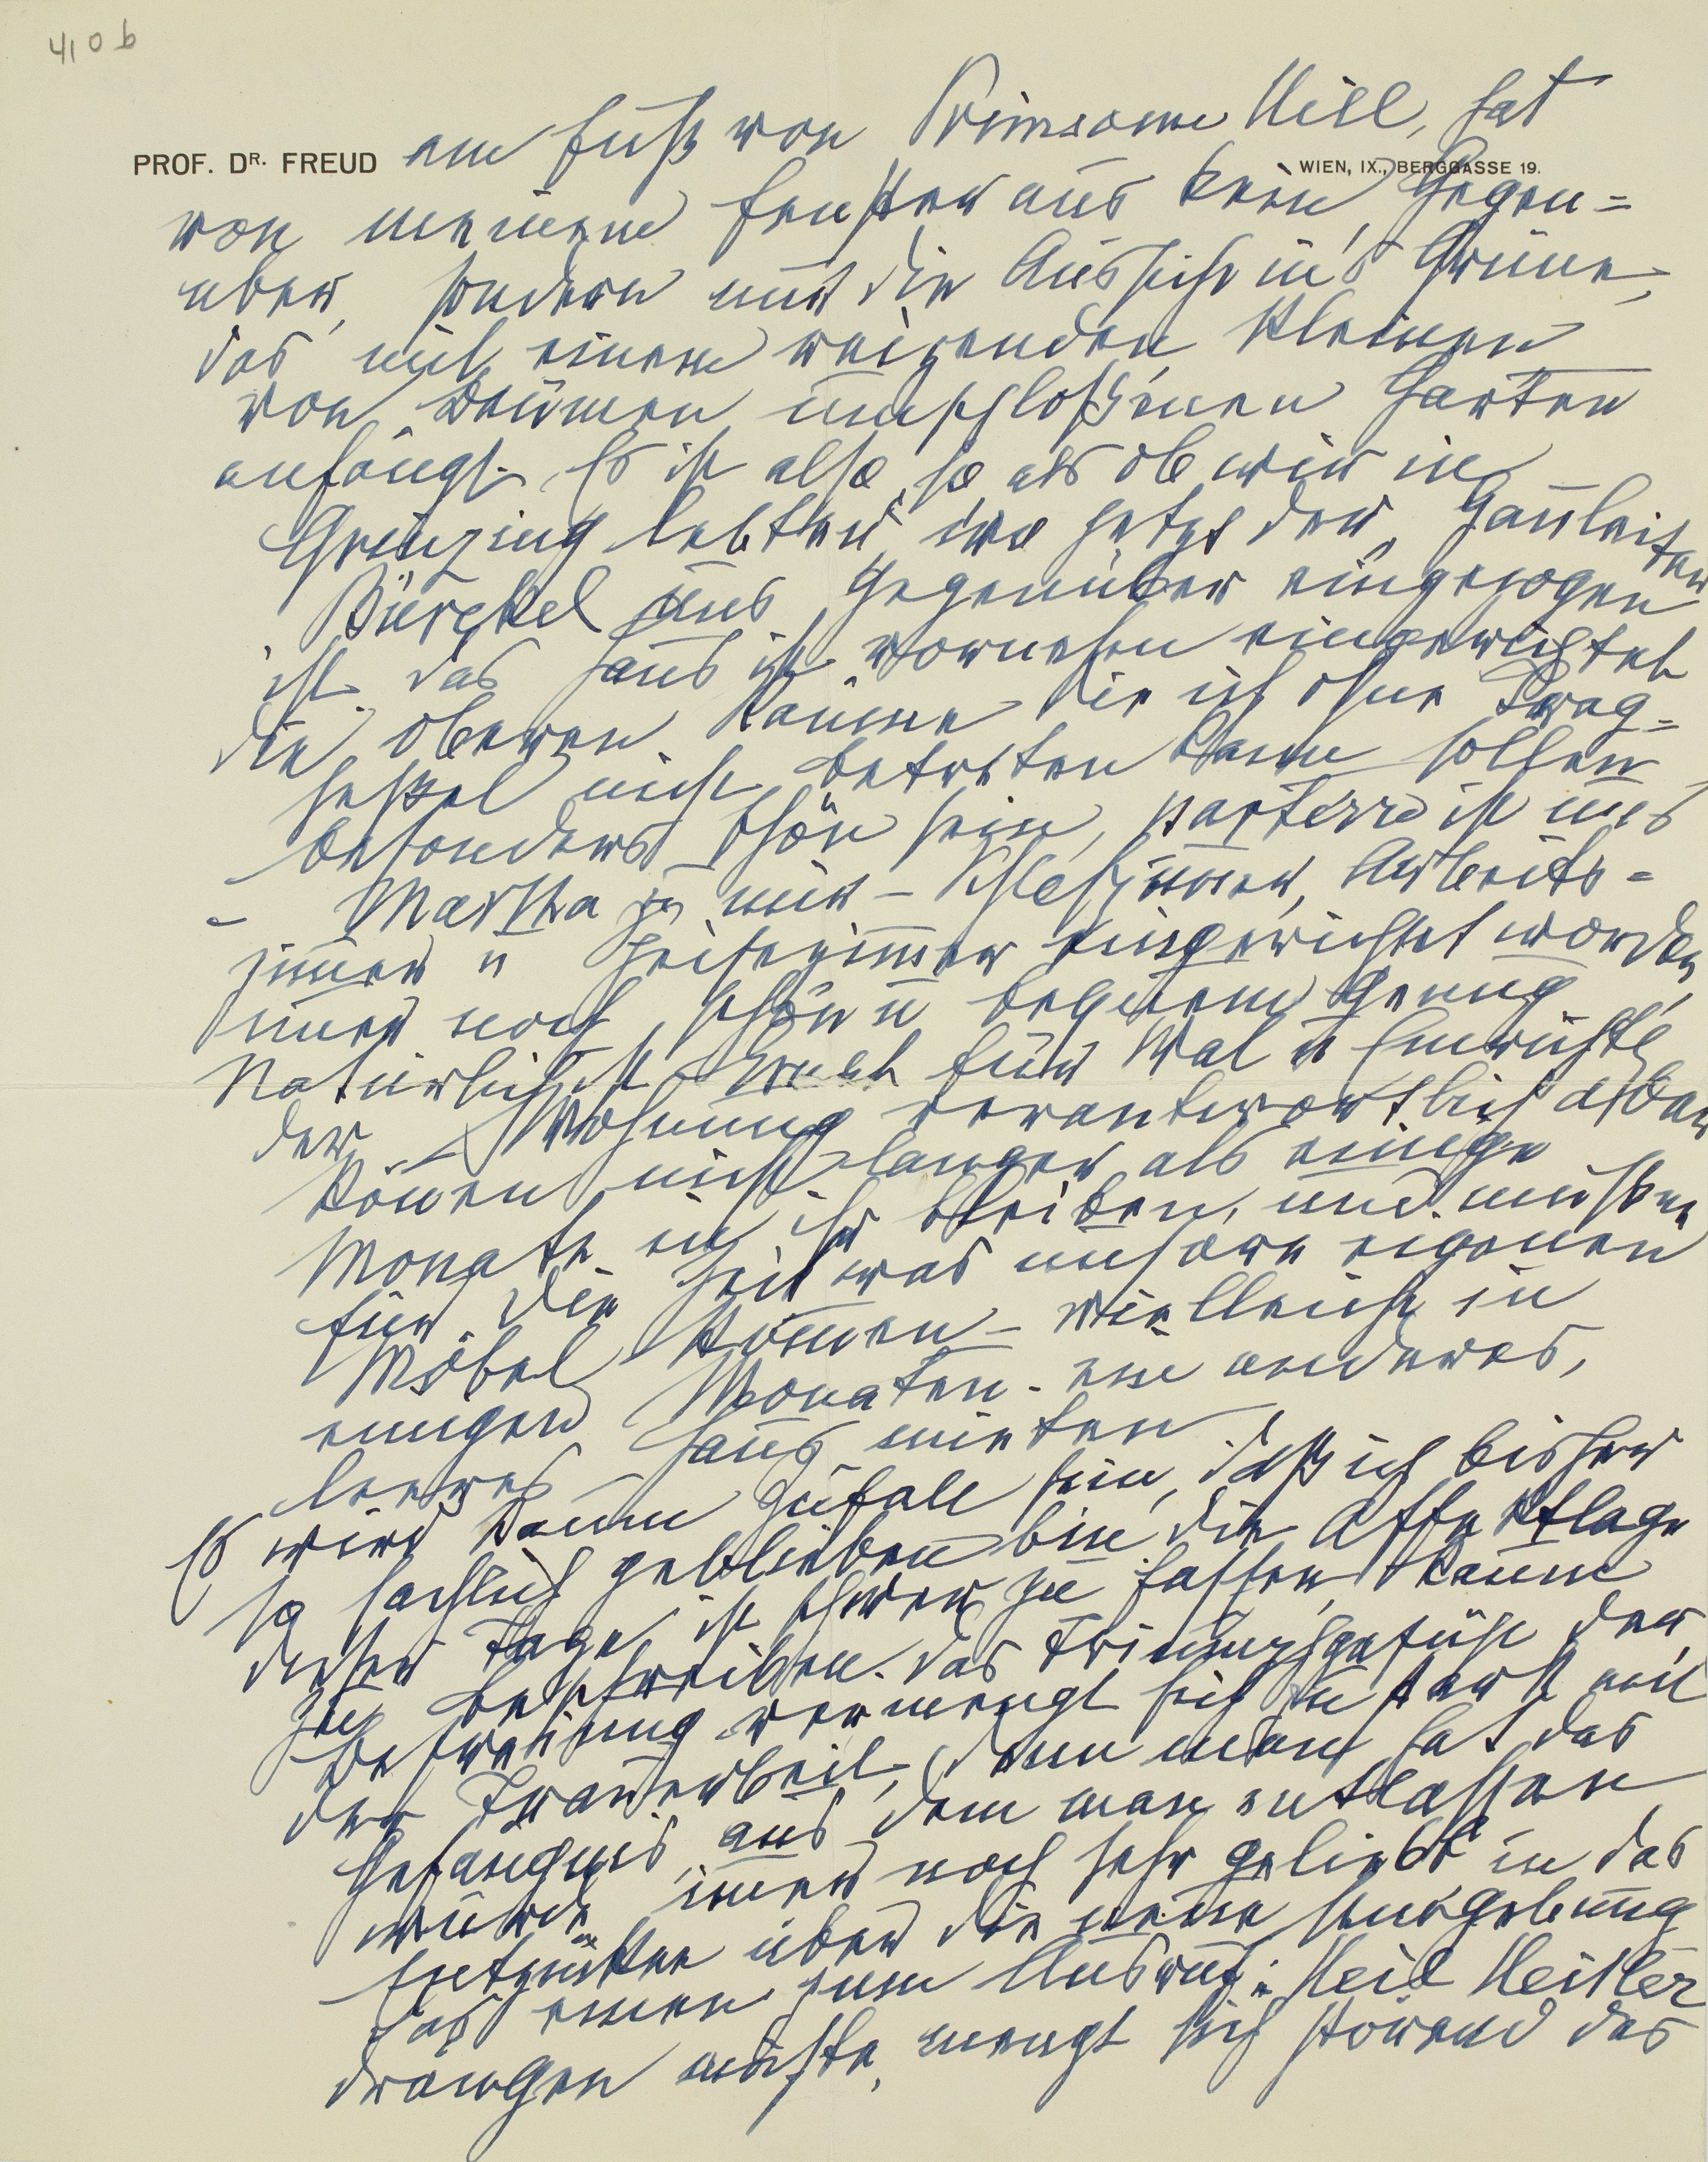 410 b
PROF. DR. FREUD
WIEN, IX., BERGGASSE 19.
am Fuß von Primsome Hill, hat
von meinem Fenster aus kein Gegen=
über, sondern nur die Aussicht in's Grüne,
das mit einem reizenden kleinen
von Bäumen umschloßenen Garten
anfängt. Es ist also so als ob wir in
Grinzing lebten wo jetzt der Gauleiter
Bürckel uns gegenüber eingezogen
ist. Das Haus ist vornehm eingerichtet
die oberen Räume die ich ohne Trag=
sessel nicht betreten kann sollen
besonders schön sein, parterre ist uns
– Martha u mir – Schlafzimmer, Arbeits=
zimmer u Speisezimmer eingerichtet worden
immer noch schön u bequem genug
Natürlich ist Ernst für Wal u Einrichtg
der Wohnung verantwortlich aber
können nicht länger als einige
Monate in ihr bleiben, und müssen
für die Zeit was unsere eigenen
Möbel kommen – vielleicht in
einigen Monaten – ein anderes,
leeres Haus mieten
Es wird kaum Zufall sein, daß ich bisher
so sachlich geblieben bin die Affektlage
dieser Tage ist schwer zu fassen, kaum
zu beschreiben. Das Triumphgefühl der
Befreiung vermengt sich zu stark mit
der Trauerbeit, denn man hat das
Gefängnis aus dem man entlassen
wurde immer noch sehr geliebt in das
Entzücken über die neue Umgebung
das einen zum Ausruf: Heil Heitler
drängen möchte, mengt sich störend das